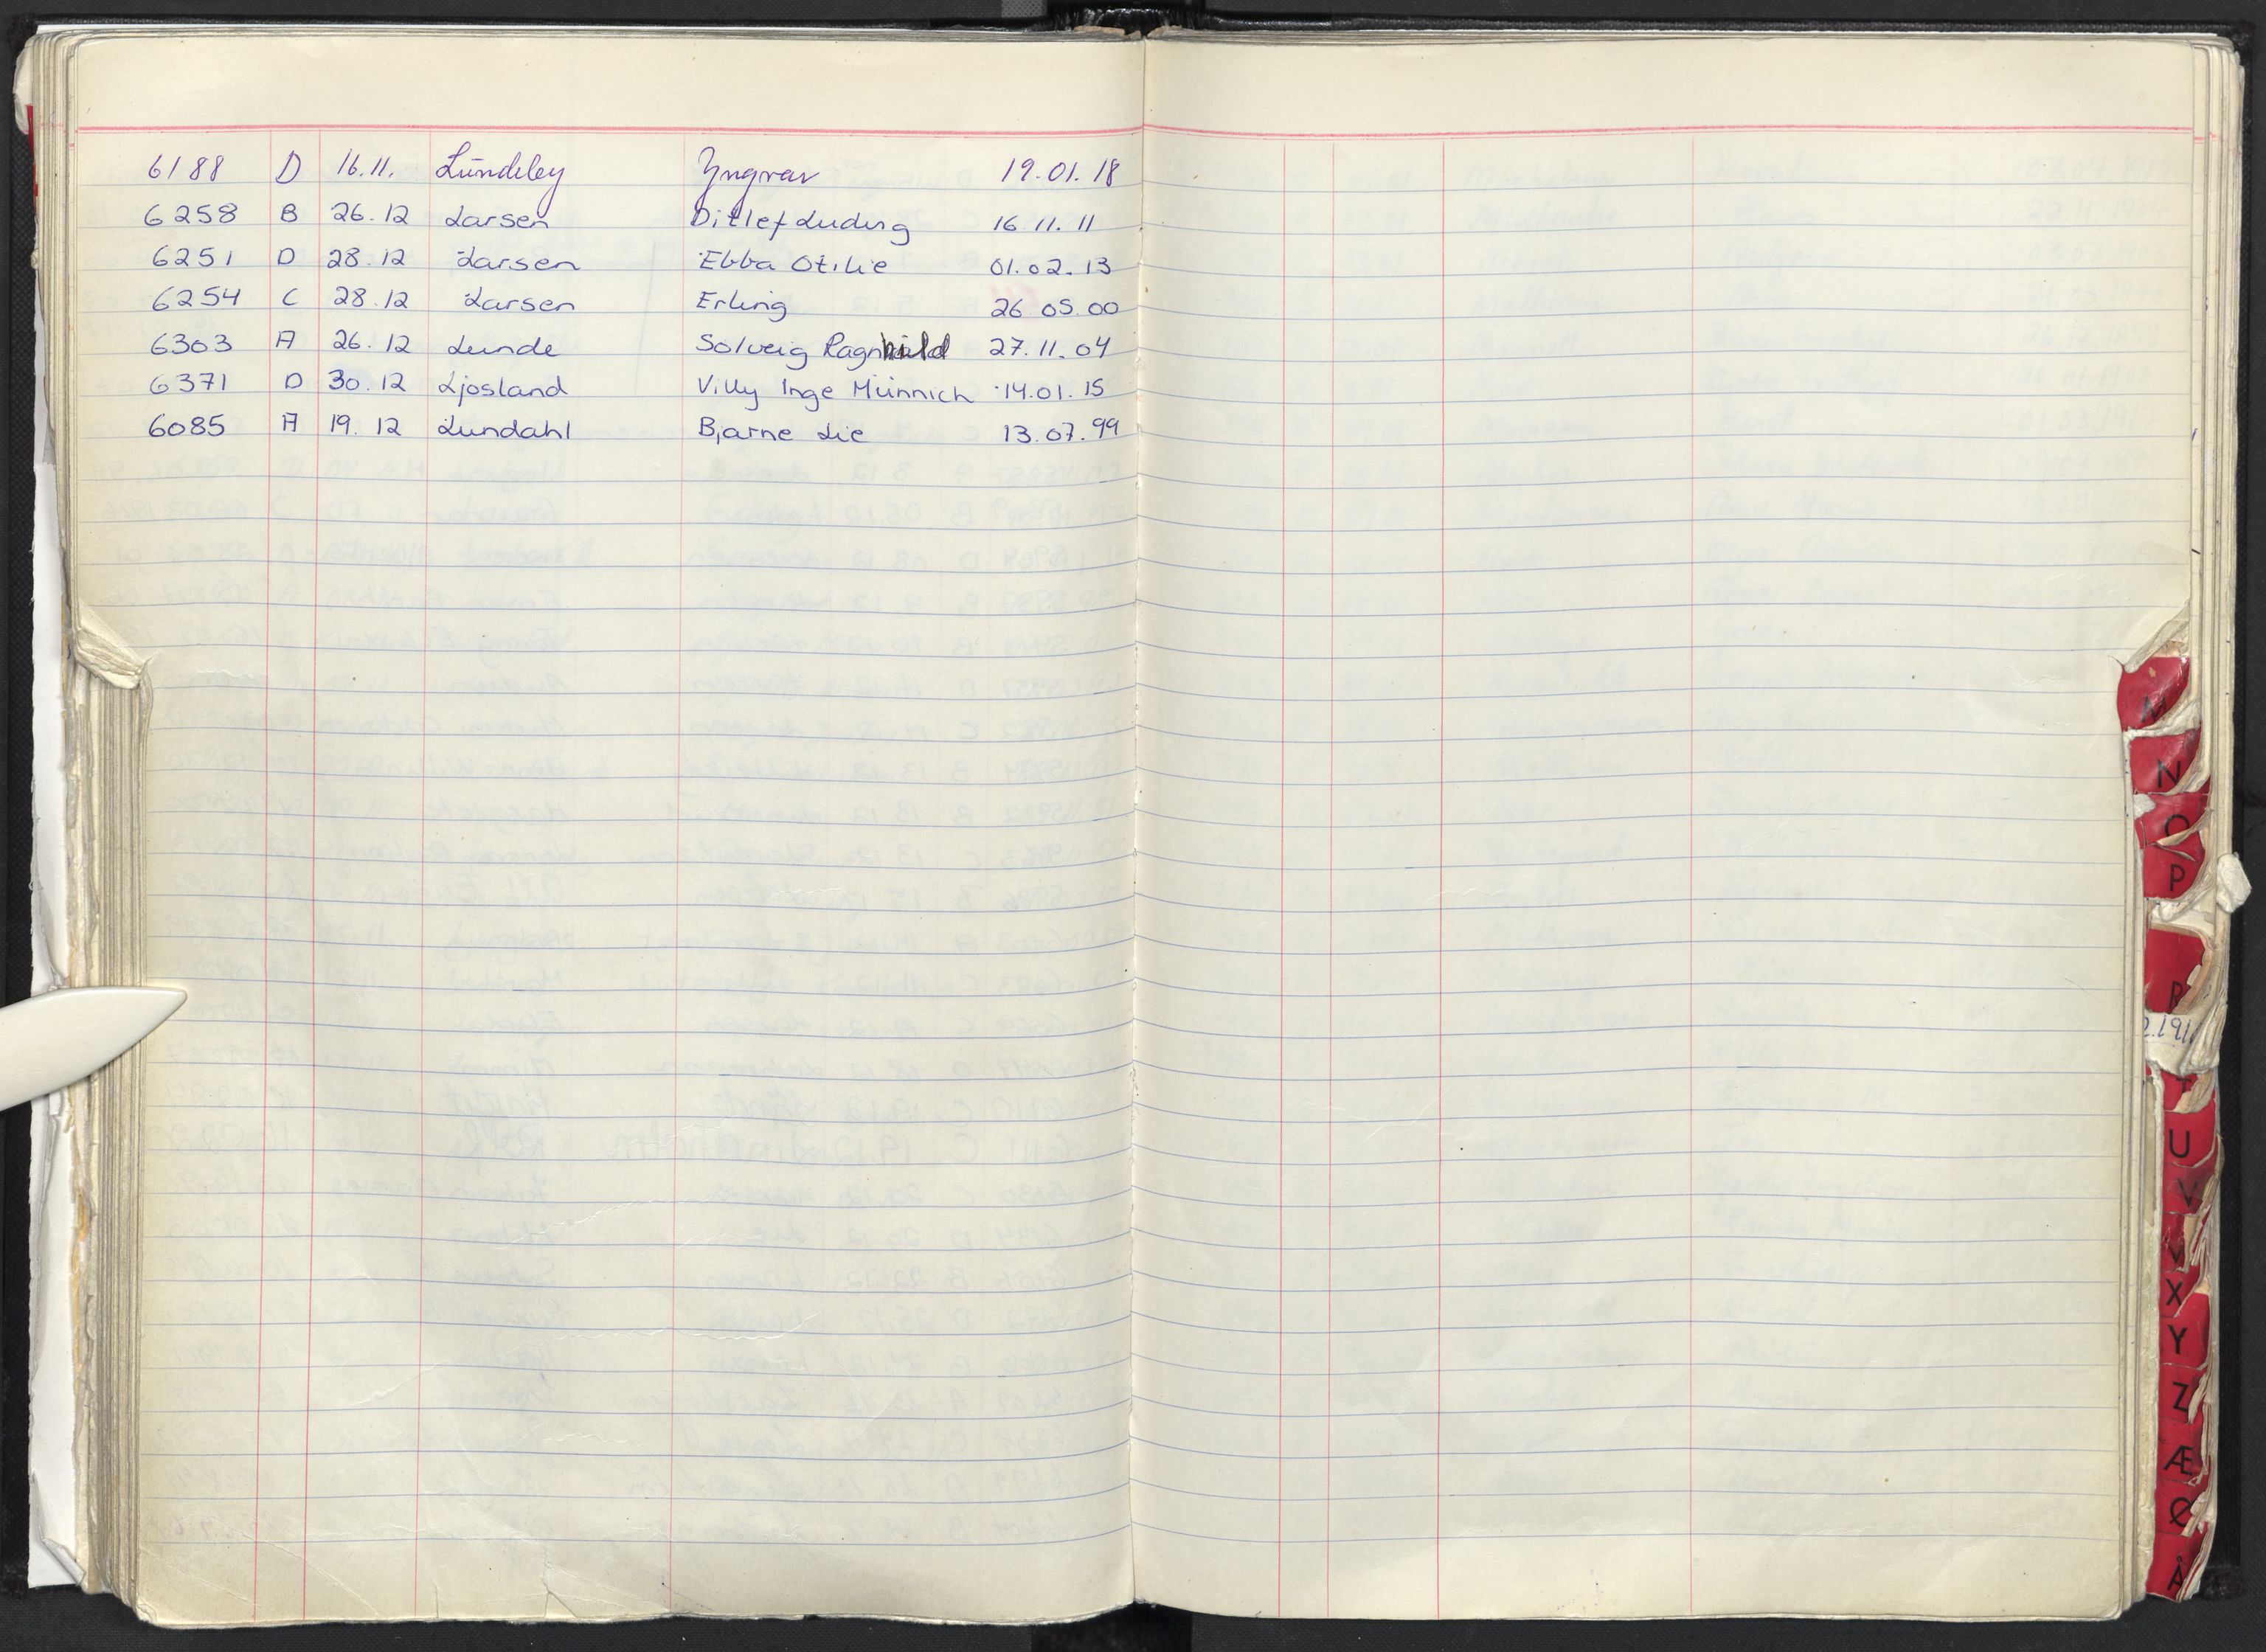 6188 D 16.11. Lundeby Yngvar 19.01.18
6258 B 26.12 Larsen Ditlef Ludvig 16.11.11
6251 D 28.12 Larsen Ebba Otilie 01.02.13
6254 C 28.12 Larsen Erling 26 05.00
6303 A 26.12 Lunde Solveig Ragnhild 27.11.04
6371 D 30.12 Ljosland Villy Inge Münnich 14.01.15
6085 A 19.12 Lundahl Bjarne Lie 13.07.99
M
N
O
P
R
2.191
T
U
V
X
Y
Z
Æ
Ø
Å